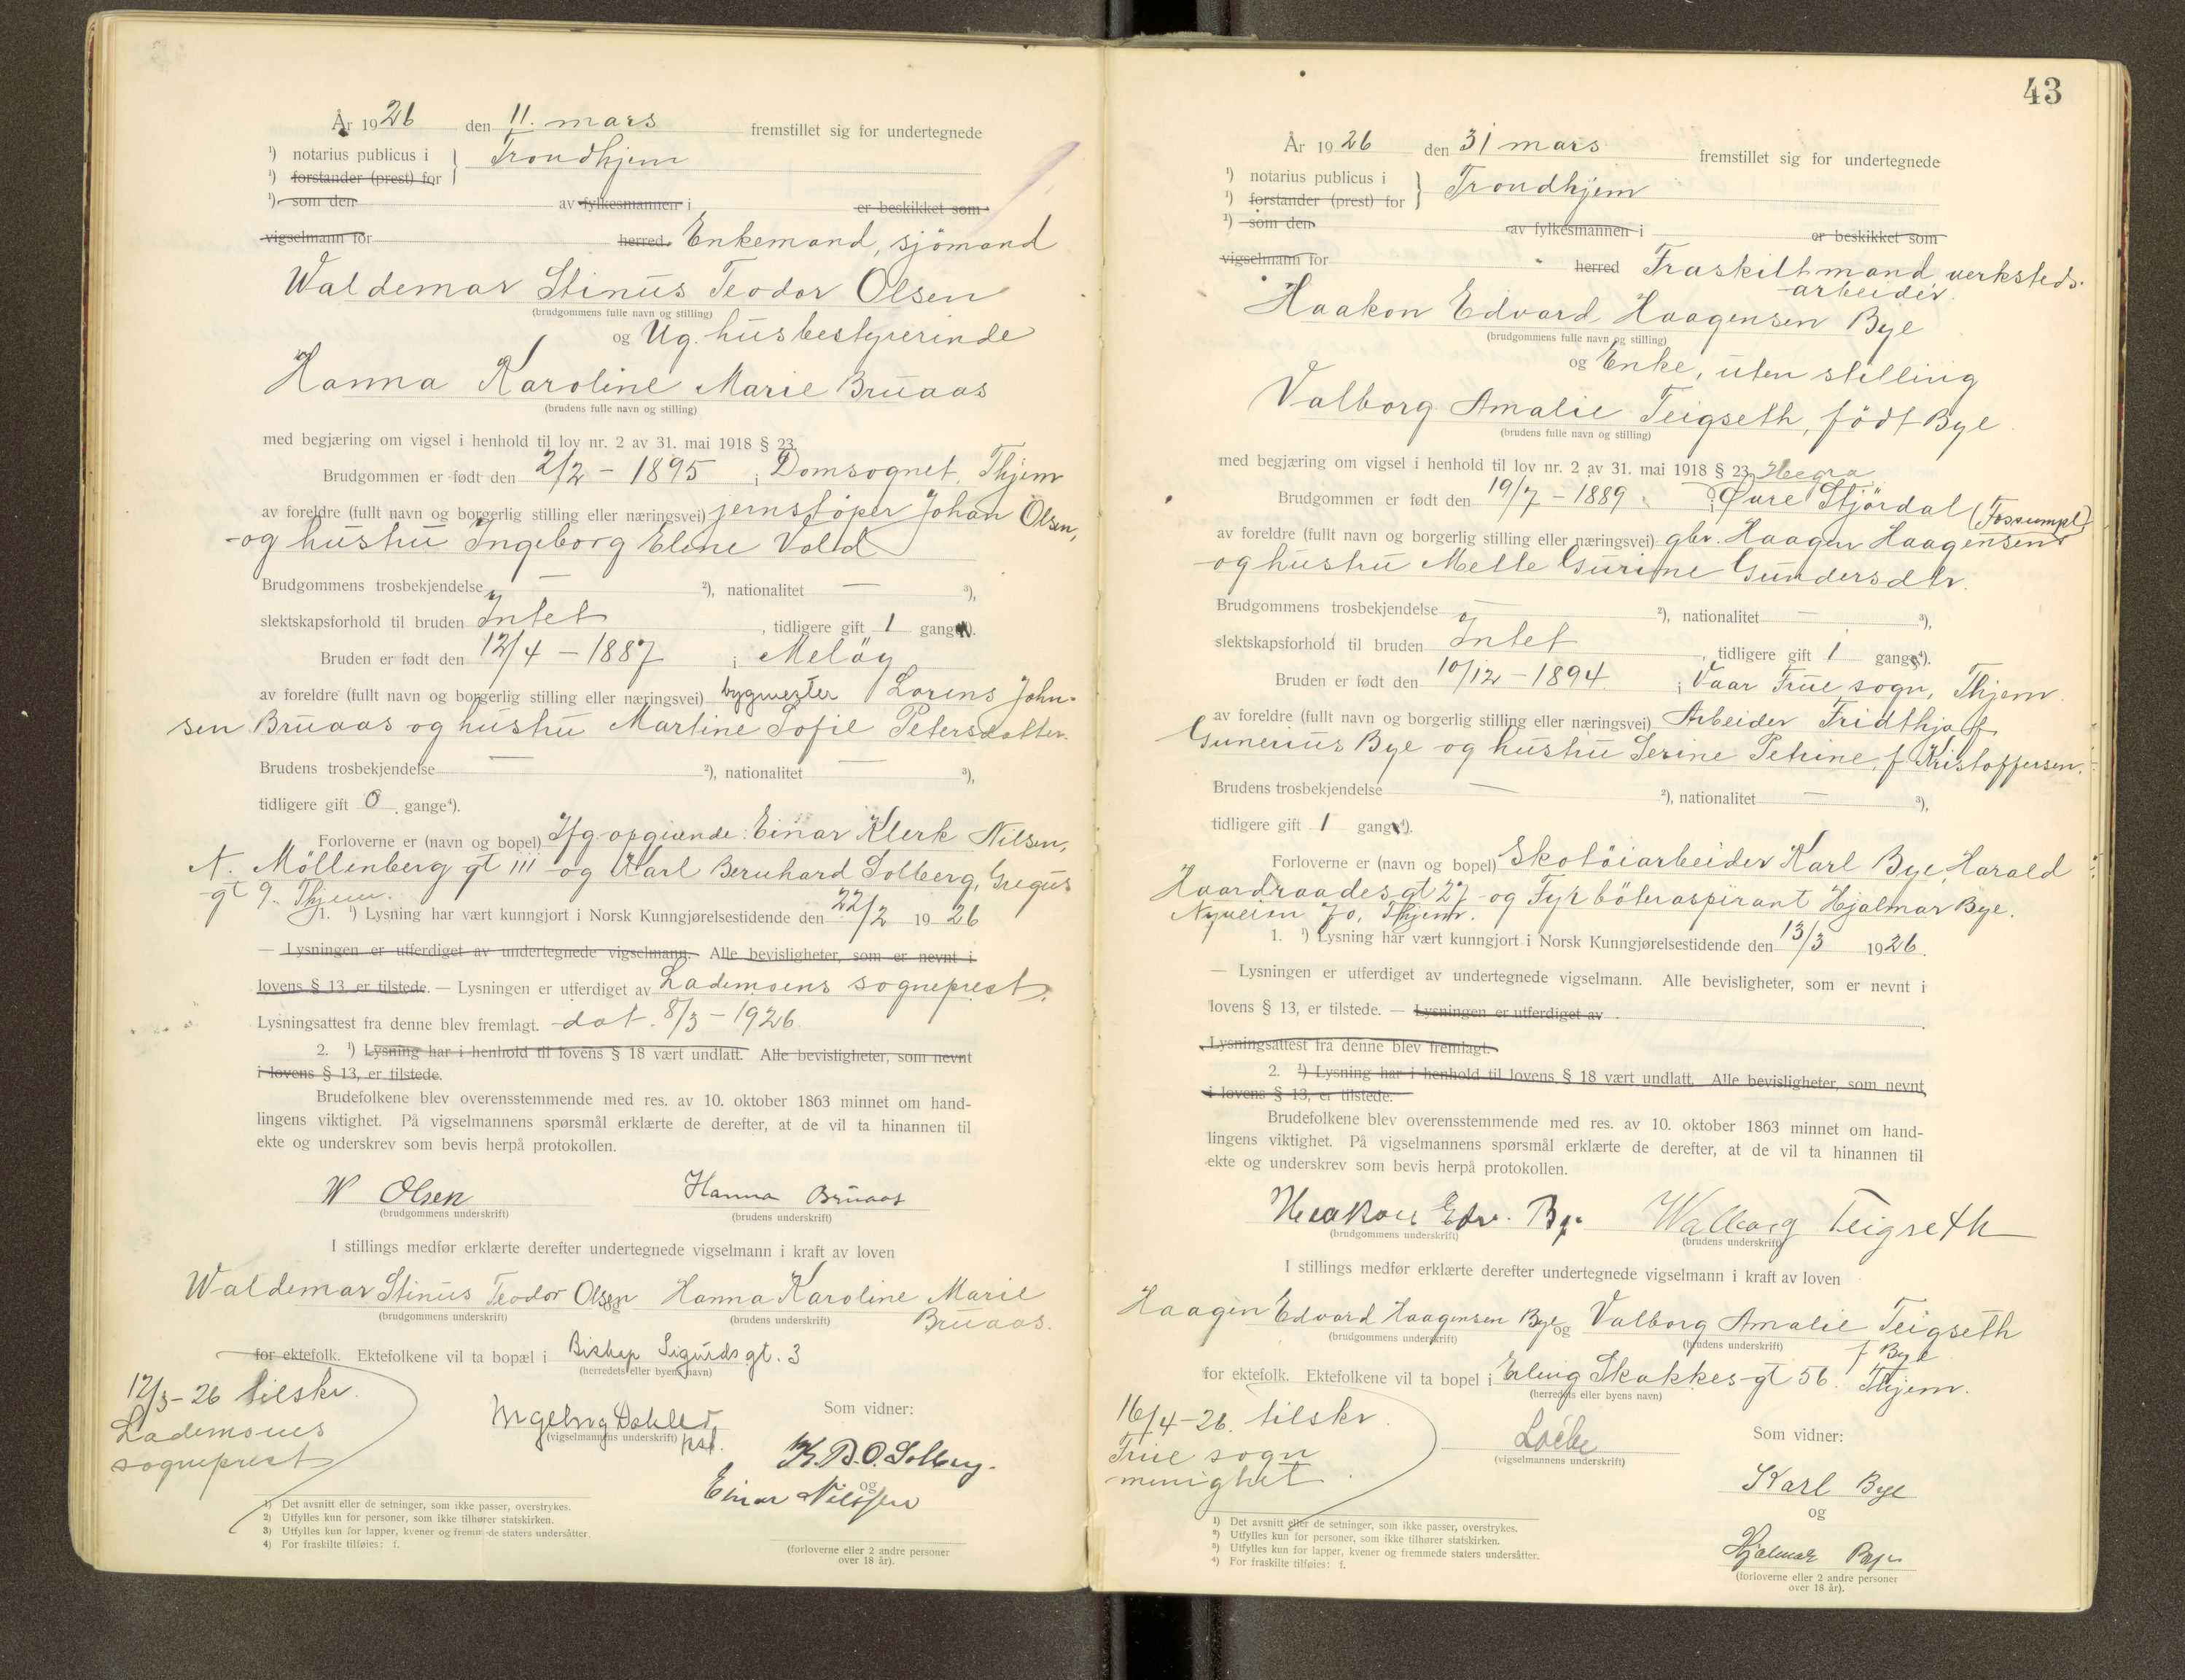 År 1926 den 11. mars fremstillet sig for undertegnede
¹) notarius publicus i } Trondhjem
¹) forstander (prest) for
¹) som den av fylkesmannen i er beskikket som
vigselmann for herred. Enkemand, sjömand
Waldemar Stinus Teodor Olsen
(brudgommens fulle navn og stilling)
og Ug. husbestyrerinde
Hanna Karoline Marie Bruaas
(brudens fulle navn og stilling)
med begjæring om vigsel i henhold til lov nr. 2 av 31. mai 1918 § 23.
Brudgommen er født den 2/2 - 1895 i Domsognet, Thjem
av foreldre (fullt navn og borgerlig stilling eller næringsvei) jernstöper Johan Olsen,
og hustru Ingeborg Eline Vold
Brudgommens trosbekjendelse — ²), nationalitet — ³),
slektskapsforhold til bruden Intet, tidligere gift 1 gang ⁴).
Bruden er født den 12/4 - 1887 i Melöy
av foreldre (fullt navn og borgerlig stilling eller næringsvei) bygmester Lorens John-
sen Bruaas og hustru Martine Sofie Petersdatter.
Brudens trosbekjendelse — ²), nationalitet — ³),
tidligere gift 0 gange⁴).
Forloverne er (navn og bopel) Ifg. opgivende: Einar Klerk Nilsen,
N. Möllenberg gt 111 og Karl Bernhard Solberg, Gregus
gt 9. Thjem.
1. ¹) Lysning har vært kunngjort i Norsk Kunngjørelsestidende den 22/2 1926
— Lysningen er utferdiget av undertegnede vigselmann. Alle bevisligheter, som er nevnt i
lovens § 13 er tilstede. — Lysningen er utferdiget av Lademoens sogneprest.
Lysningsattest fra denne blev fremlagt. dat. 8/3 - 1926.
2. ¹) Lysning har i henhold til lovens § 18 vært undlatt. Alle bevisligheter, som nevnt
i lovens § 13, er tilstede.
Brudefolkene blev overensstemmende med res. av 10. oktober 1863 minnet om hand-
lingens viktighet. På vigselmannens spørsmål erklærte de derefter, at de vil ta hinannen til
ekte og underskrev som bevis herpå protokollen.
W Olsen Hanna Bruaas
(brudgommens underskrift) (brudens underskrift)
I stillings medfør erklærte derefter undertegnede vigselmann i kraft av loven
Waldemar Stinus Teodor Olsen og Hanna Karoline Marie
Bruaas.
(brudgommens underskrift) (brudens underskrift)
for ektefolk. Ektefolkene vil ta bopæl i Biskop Sigurds gt. 3
(herredets eller byens navn)
12/3-26 tilskr.
Lademoens
sogneprest
Som vidner:
(vigselmannens underskrift) pst.
K. B. O. Solberg.
og
Einar Nilssen
1) Det avsnitt eller de setninger, som ikke passer, overstrykes.
2) Utfylles kun for personer, som ikke tilhører statskirken.
3) Utfylles kun for lapper, kvener og fremmede staters undersåtter.
4) For fraskilte tilføies: f.
(forloverne eller 2 andre personer
over 18 år).
43
År 1926 den 31 mars fremstillet sig for undertegnede
¹) notarius publicus i } Trondhjem
¹) forstander (prest) for
¹) som den av fylkesmannen i er beskikket som
vigselmann for herred Fraskilt mand, verksteds-
arbeider.
Haakon Edvard Haagensen Bye
(brudgommens fulle navn og stilling)
og Enke, uten stilling
Valborg Amalie Teigseth, födt Bye
(brudens fulle navn og stilling)
med begjæring om vigsel i henhold til lov nr. 2 av 31. mai 1918 § 23. Hegra
Brudgommen er født den 19/7 - 1889 i Övre Stjördal (Fossumpl.)
av foreldre (fullt navn og borgerlig stilling eller næringsvei) gbr. Haagen Haagensen
og hustru Mette Gurine Gundersdtr.
Brudgommens trosbekjendelse — ²), nationalitet — ³),
slektskapsforhold til bruden Intet, tidligere gift 1 gang ⁴).
Bruden er født den 10/12 - 1894. i Vaar Frue sogn, Thjem.
av foreldre (fullt navn og borgerlig stilling eller næringsvei) Arbeider Fridthjof
Gunerius Bye og hustru Serine Petrine, f. Kristoffersen.
Brudens trosbekjendelse — ²), nationalitet — ³),
tidligere gift 1 gang ⁴).
Forloverne er (navn og bopel) Skotöiarbeider Karl Bye, Harald
Haardraadesgt 27 og Fyrböteraspirant Hjalmar Bye.
Nyveien 70, Thjem.
1. ¹) Lysning har vært kunngjort i Norsk Kunngjørelsestidende den 13/3 1926.
— Lysningen er utferdiget av undertegnede vigselmann. Alle bevisligheter, som er nevnt i
lovens § 13, er tilstede. — Lysningen er utferdiget av
Lysningsattest fra denne blev fremlagt.
2. ¹) Lysning har i henhold til lovens § 18 vært undlatt. Alle bevisligheter, som nevnt
i lovens § 13, er tilstede.
Brudefolkene blev overensstemmende med res. av 10. oktober 1863 minnet om hand-
lingens viktighet. På vigselmannens spørsmål erklærte de derefter, at de vil ta hinannen til
ekte og underskrev som bevis herpå protokollen.
Haakon Edv. Bye Walborg Teigseth
(brudgommens underskrift) (brudens underskrift)
I stillings medfør erklærte derefter undertegnede vigselmann i kraft av loven
Haagen Edvard Haagensen Bye og Valborg Amalie Teigseth
f Bye
(brudgommens underskrift) (brudens underskrift)
for ektefolk. Ektefolkene vil ta bopel i Erling Skakkes gt 56. Thjem.
(herredets eller byens navn)
16/4-26. tilskr.
Frue sogn
menighet
(vigselmannens underskrift)
Som vidner:
Karl Bye
og
Hjalmar Bye
1) Det avsnitt eller de setninger, som ikke passer, overstrykes.
2) Utfylles kun for personer, som ikke tilhører statskirken.
3) Utfylles kun for lapper, kvener og fremmede staters undersåtter.
4) For fraskilte tilføies: f.
(forloverne eller 2 andre personer
over 18 år).